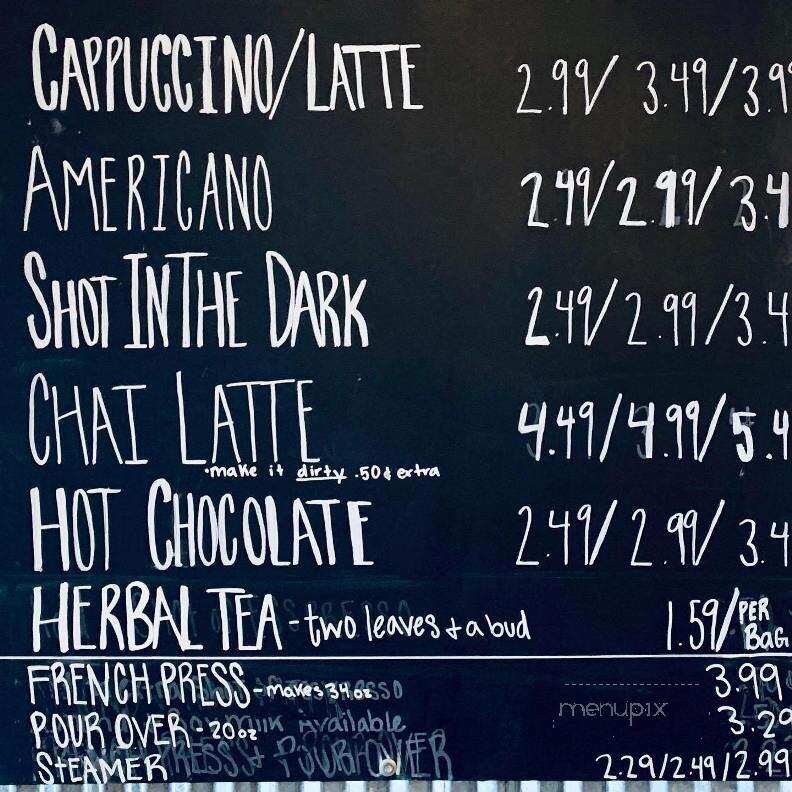 CAPPUCCINO/LATTE 2.99/ 3.49/3.9
AMERICANO 2.49/2.99/3.4
SHOT IN THE DARK 2.49/2.99/3.4
CHAI LATTE 4.49/4.99/5.4
•make it dirty .50¢ extra
HOT CHOCOLATE 2.49/2.99/3.4
HERBAL TEA - two leaves + a bud 1.59/PER BAG
FRENCH PRESS - makes 34 oz 3.99
menupix
POUR OVER - 20oz Available 3.29
STEAMER 2.29/2.49/2.99